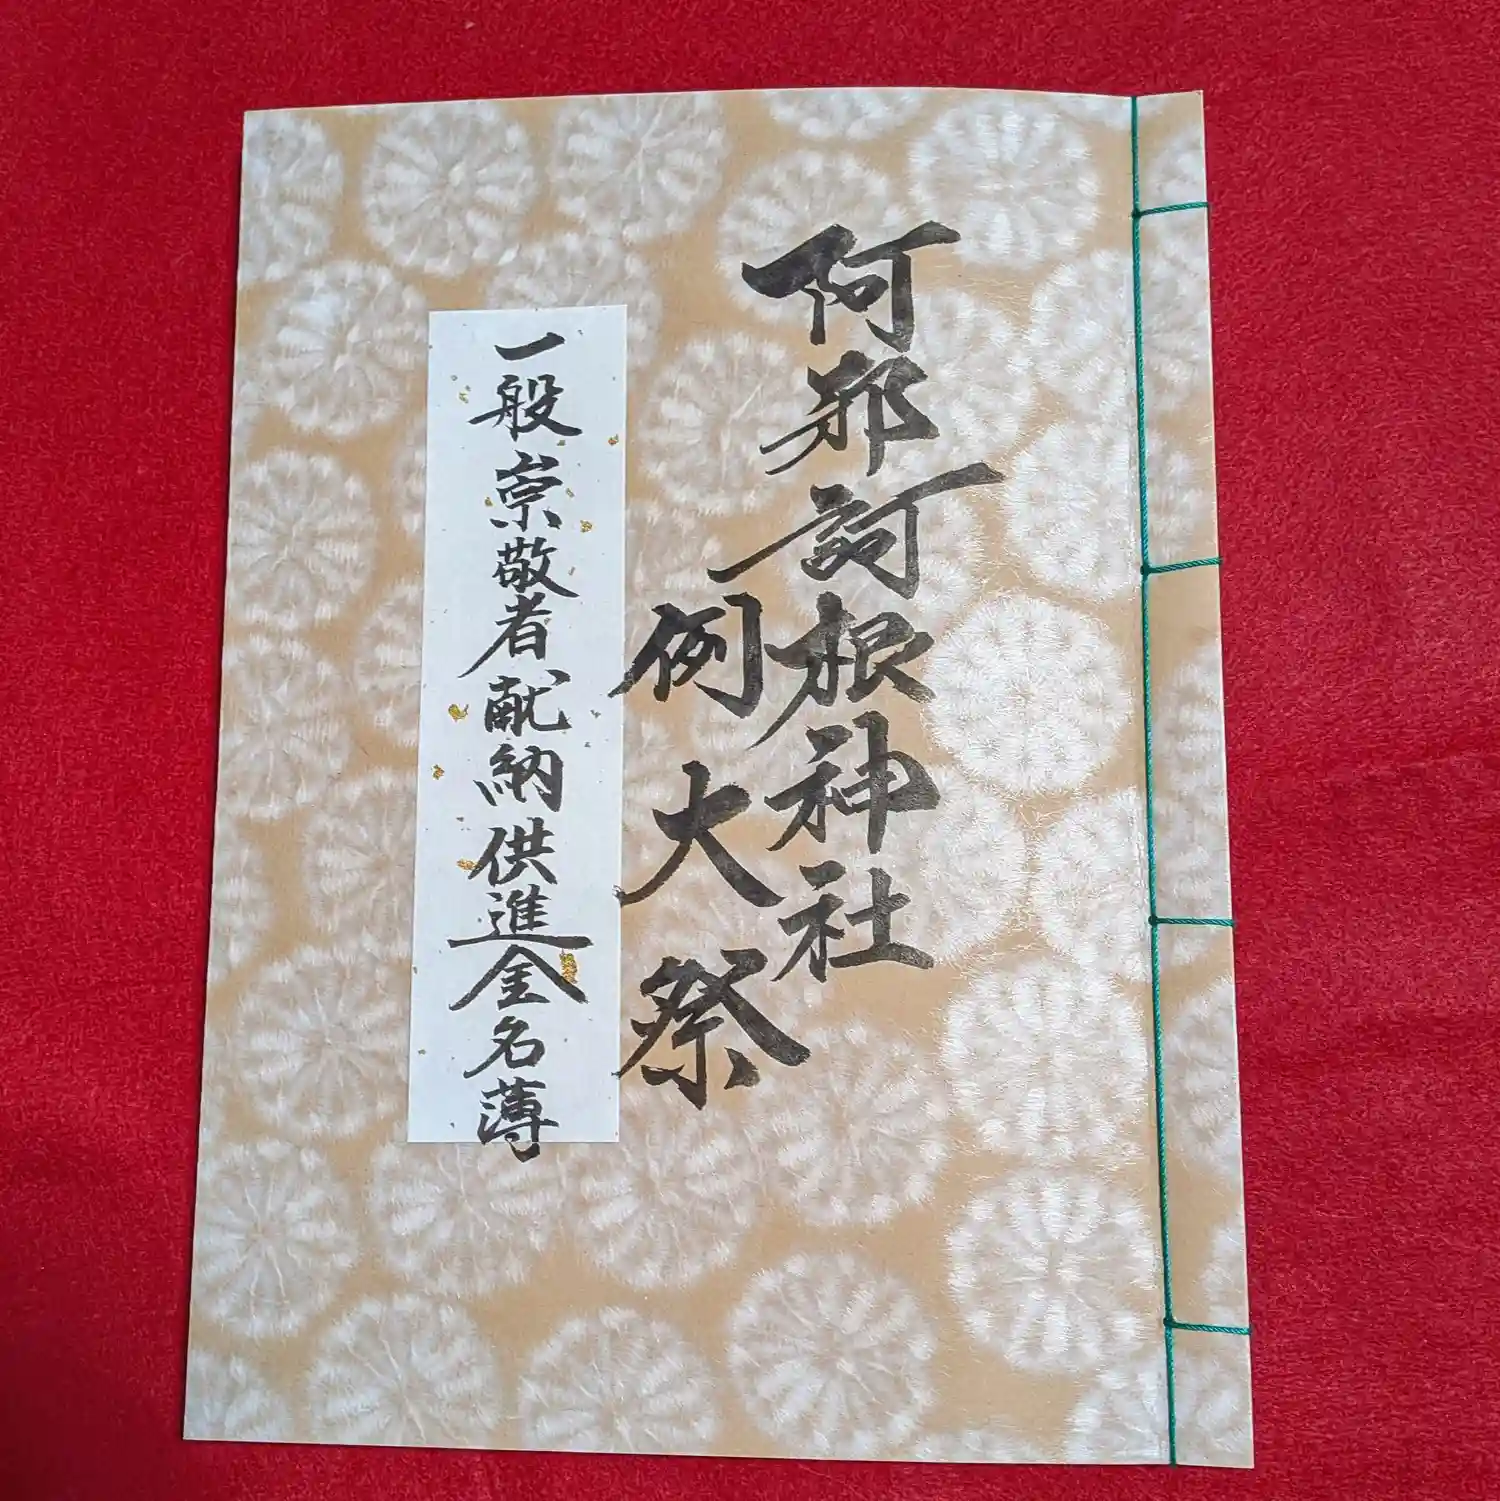 阿邪訶根神社
例大祭
一般崇敬者献納供進金名薄